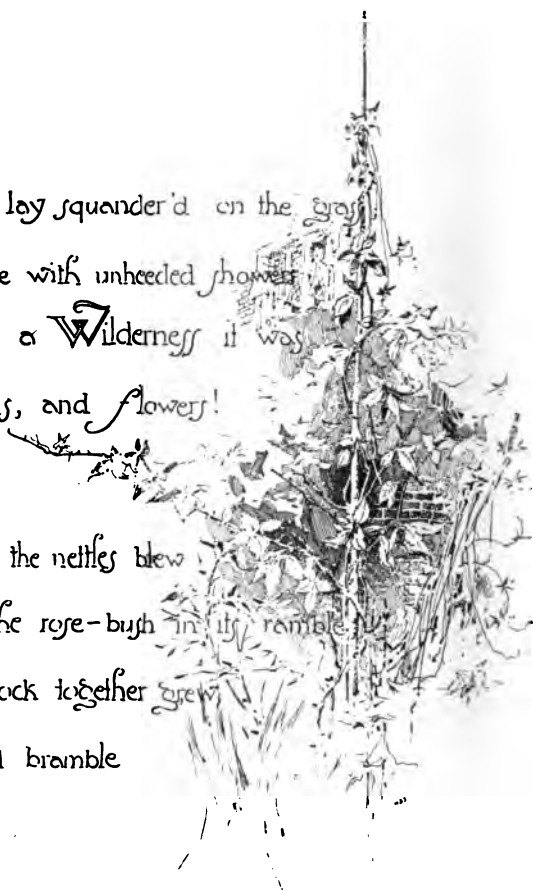 lay squander'd on the grass
with unheeded showers
a Wilderness it was
and flowers!
the nettles blew
rose-bush in its ramble
together grew
bramble